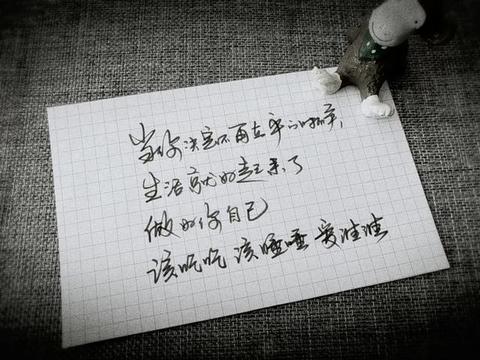 当你决定不再在乎的时候,
生活就好起来了
做好你自己
该吃吃 该睡睡 爱谁谁